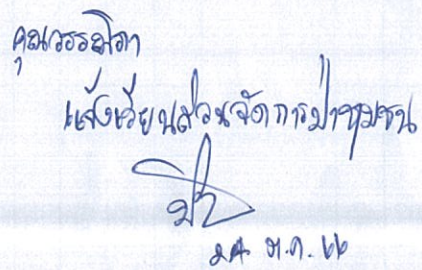 คุณวรรณิภา
แจ้งเวียนส่วนจัดการป่าชุมชน
๒๔ ม.ค. ๖๖